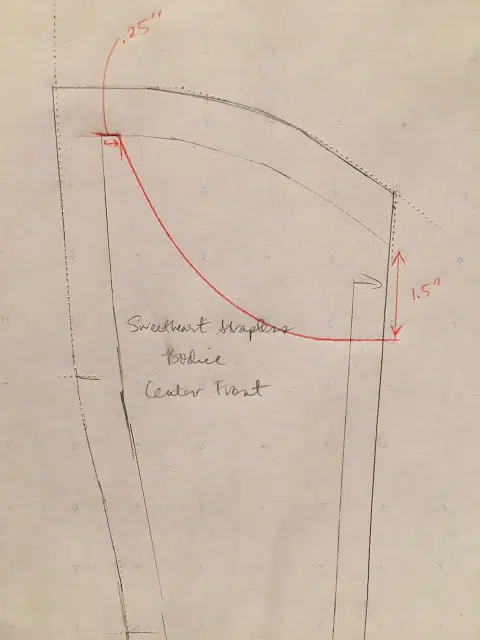 .25"
1.5"
Sweetheart Strapless
Bodice
Center Front